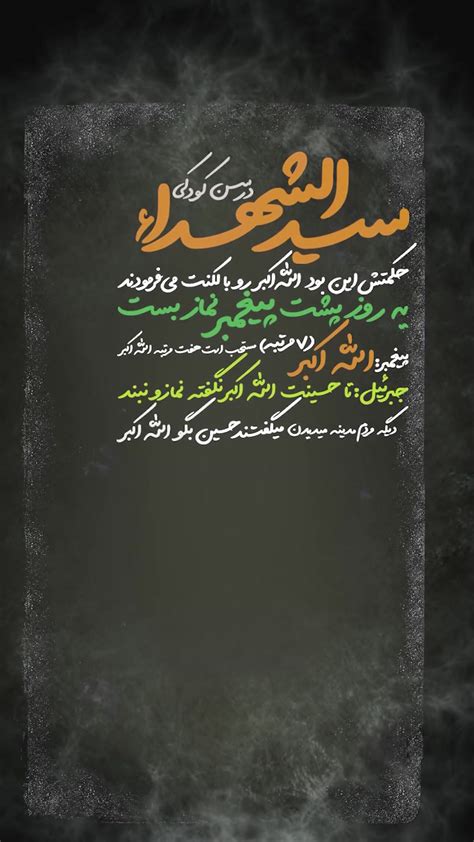 در سن کودکی
سید الشهداء
حکمتش این بود الله اکبر رو با لکنت می فرمودند
یه روز پشت پیغمبر نماز بست
پیغمبر: الله اکبر (۷ مرتبه) مستحب است هفت مرتبه الله اکبر
جبرئیل: تا حسینت الله اکبر نگفته نمازو نبند
دیگه مردم مدینه میدیدن میگفتند حسین بگو الله اکبر